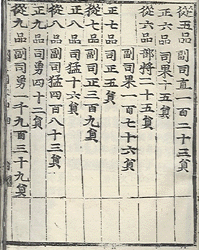 從五品 副司直一百二十三員
正六品 司果十五員
從六品 部將二十五員
副司果一百七十六員
正七品 司正五員
從七品 副司正三百九員
正八品 司猛十六員
從八品 副司猛四百八十三員
正九品 司勇四十二員
從九品 副司勇一千九百三十九員